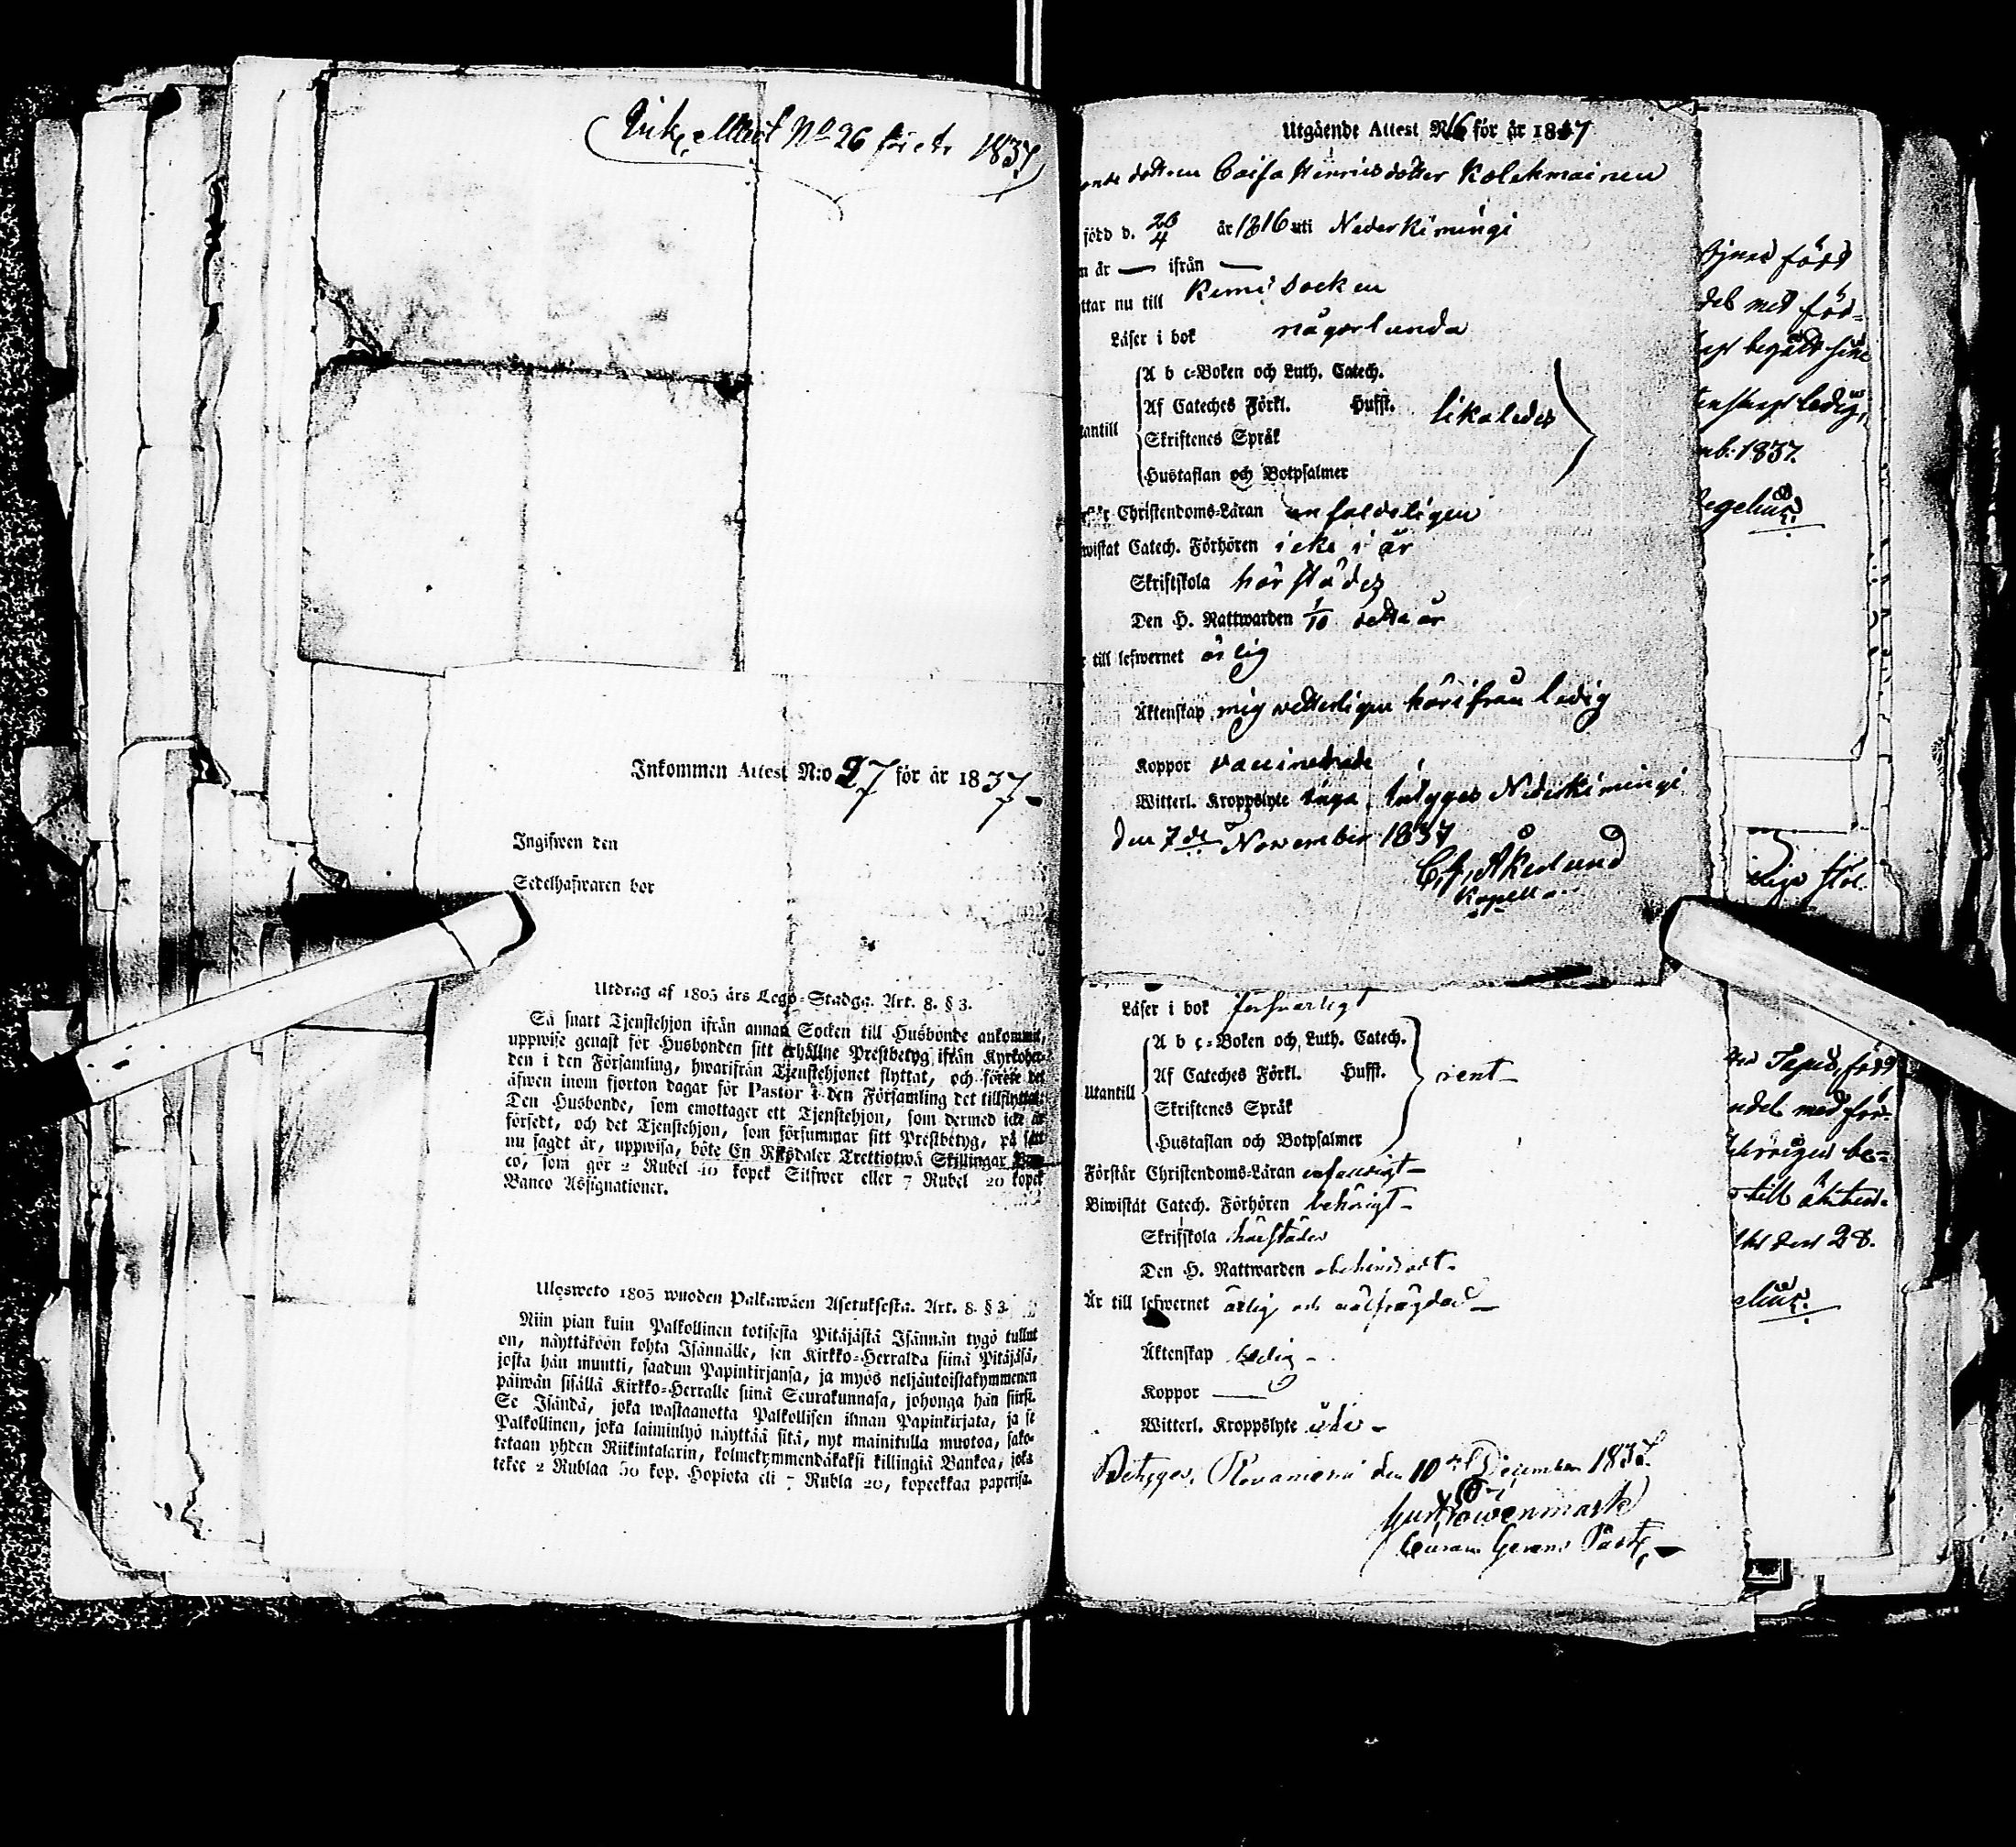 Ink. Attest No 26 för år 1837
Inkommen Attest N:o 27 för år 1837
Ingifwen den
Sedelhafwaren bor
Utdrag af 1805 års Lego-Stadga. Art. 8. § 3.
Så snart Tjenstehjon ifrån annan Socken till Husbonde ankommit,
uppwise genast för Husbonden sitt erhållne Prestbetyg ifrån Kyrkoher-
den i den Församling, hwarifrån Tjenstehjonet flyttat, och förete det
äfwen inom fjorton dagar för Pastor i den Församling det tillflyttat.
Den Husbonde, som emottager ett Tjenstehjon, som dermed icke är
försedt, och det Tjenstehjon, som försummar sitt Prestbetyg, på sätt
nu sagdt är, uppwisa, böte En Riksdaler Trettiotwå Skillingar Ban-
co, som gör 2 Rubel 10 kopek Silfwer eller 7 Rubel 20 kopek
Banco Assignationer.
Ulosweto 1805 wuoden Palkawäen Asetuksesta. Art. 8. § 3.
Niin pian kuin Palkollinen totisesta Pitäjästä Isännän tygö tullut
on, näyttäköön kohta Isännälle, sen Kirkko-Herralda siinä Pitäjäsä,
josta hän muutti, saadun Papinkirjansa, ja myös neljäntoistakymmenen
päiwän sisällä Kirkko-Herralle siinä Seurakunnasa, johonga hän siirsi.
Se Isändä, joka wastaanotta Palkollisen ilman Papinkirjata, ja se
Palkollinen, joka laiminlyö näyttää sitä, nyt mainitulla muotoa, sako-
tetaan yhden Riikintalarin, kolmekymmendäkaksi killingiä Bankoa, joka
tekee 2 Rublaa 50 kop. Hopiota eli 7 Rubla 20, kopeekkaa paperisa.
Utgående Attest N 16 för år 1837
dottren Caisa Henricsdotter Kolehmainen
född d. 26/4 år 1816 uti Nederkimingi
n år — ifrån —
ttar nu till Kemi Socken
Läser i bok någorlunda
A b c-Boken och Luth. Catech.
Af Cateches Förkl. Hufft. likaledes
antill
Skriftenes Språk
Hustaflan och Botpsalmer
Christendoms-Läran enfaldeligen
wistat Catech. Förhören icke i år
Skriftskola härstädes
Den H. Nattwarden 1/10 detta år
till lefwernet ärlig
Äktenskap mig vetterligen härifrån ledig
Koppor vaccinerade
Witterl. Kroppslyte inga, intygas Nederkimingi
den 7de November 1837
Kapell.
Läser i bok försvarligt
A b c-Boken och Luth. Catech.
Af Cateches Förkl. Hufft. rent
Utantill
Skriftenes Språk
Hustaflan och Botpsalmer
Förstår Christendoms-Läran
Biwistat Catech. Förhören behörigt
Skrifskola härstädes
Den H. Nattwarden obehindradt
Är till lefwernet ärlig och välfrägdad
Äktenskap ledig
Koppor —
Witterl. Kroppslyte utan
Betyges. Rovaniemi den 10de December 1837.
född
del med för-
ledig,
mb: 1837.
född
ndel med för-
be-
till äkten-
den 28.